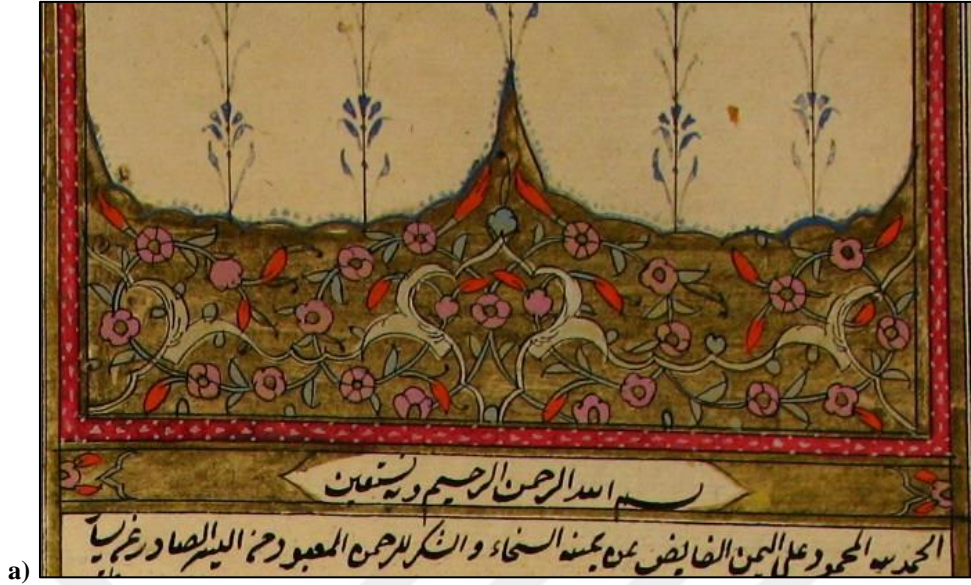 بسم الله الرحمن الرحيم وبه نستعين
الحمد لله المحمود على اليمن الفايض عن يمينه السخاء والشكر للرحمن المعبود من اليسر الصادر عن
a)